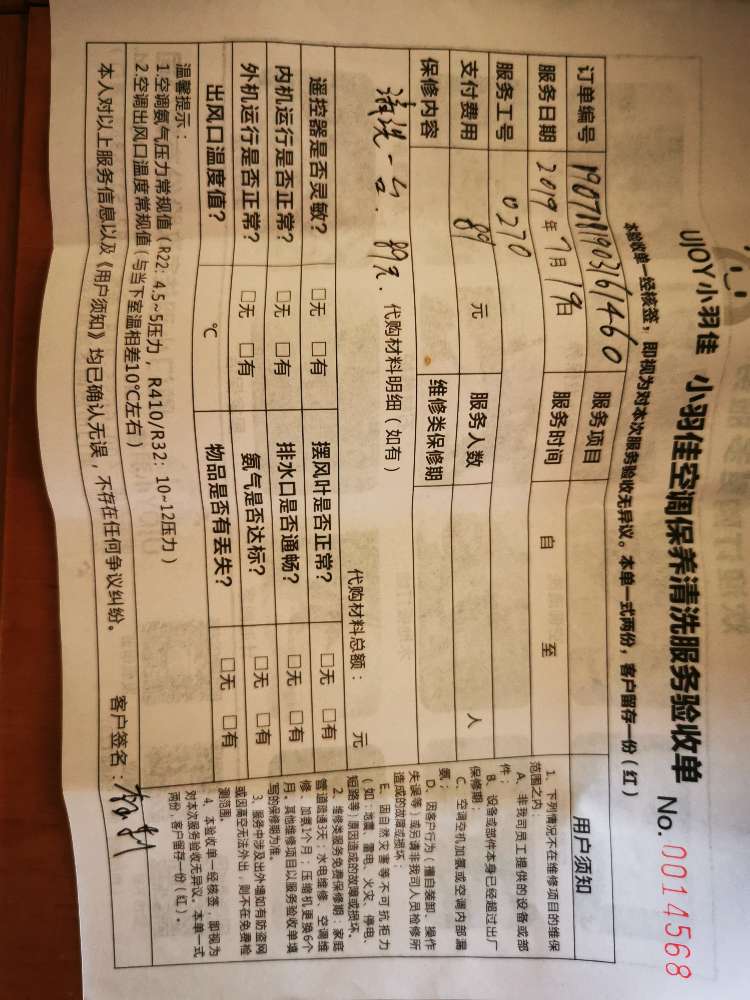 UJOY小羽佳 小羽佳空调保养清洗服务验收单 No. 0014568
本验收单一经核签，即视为对本次服务验收无异议。本单一式两份，客户留存一份（红）
订单编号 服务项目
服务日期 2019年7月19日 服务时间 自 至
服务工号 0270
支付费用 89 元 服务人数 人
保修内容 维修类保修期
清洗一台. 89元.
代购材料明细（如有） 代购材料总额： 元
遥控器是否灵敏？ □无 □有 摆风叶是否正常？ □无 □有
内机运行是否正常？ □无 □有 排水口是否通畅？ □无 □有
外机运行是否正常？ □无 □有 氨气是否达标？ □无 □有
出风口温度值？ ℃ 物品是否有丢失？ □无 □有
温馨提示：
1.空调氨气压力常规值（R22：4.5~5压力，R410/R32：10~12压力）
2.空调出风口温度常规值（与当下室温相差10℃左右）
本人对以上服务信息以及《用户须知》均已确认无误，不存在任何争议纠纷。 客户签名：
用户须知
1、下列情况不在维修项目的维保
范围之内：
A、非我司员工提供的设备或部
件；
B、设备或部件本身已经超过出厂
保修期；
C、空调空机加氨或空调内部漏
氨；
D、因客户行为（擅自装卸、操作
失误等）或另请非我司人员检修所
造成的故障或损坏；
E、因自然灾害等不可抗拒力
（如：地震、雷电、火灾、停电、
短路等）原因造成的故障或损坏。
2、维修类服务免费保修期：家庭
管道疏通3天；水电维修、空调维
修、加氨1个月；压缩机更换6个
月。其他维修项目以服务验收单填
写的保修期为准。
3、服务中涉及出外墙如有防盗网
或因高空无法外出，则不在免费检
测范围。
4、本验收单一经核签，即视为
对本次服务验收无异议。本单一式
两份，客户留存一份（红）。